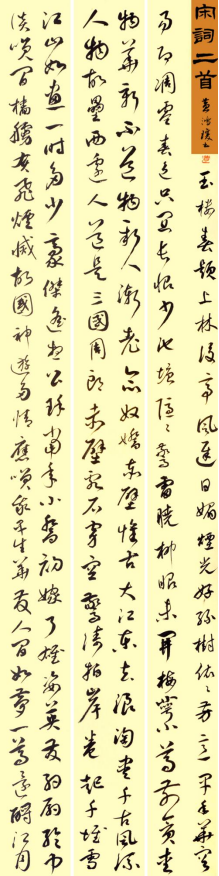 宋詞二首
玉樓春題上林後亭風遲日媚煙光好綠樹依依芳意早年華容
易即凋零春色只宜長恨少池塘隱隱驚雷曉柳眼未開梅萼小尊前貪愛
物華新不道物新人漸老念奴嬌赤壁懷古大江東去浪淘盡千古風流
人物故壘西邊人道是三國周郎赤壁亂石穿空驚濤拍岸卷起千堆雪
江山如畫一時多少豪傑遙想公瑾當年小喬初嫁了雄姿英發羽扇綸巾
談笑間檣艣灰飛煙滅故國神遊多情應笑我早生華髮人間如夢一尊還酹江月